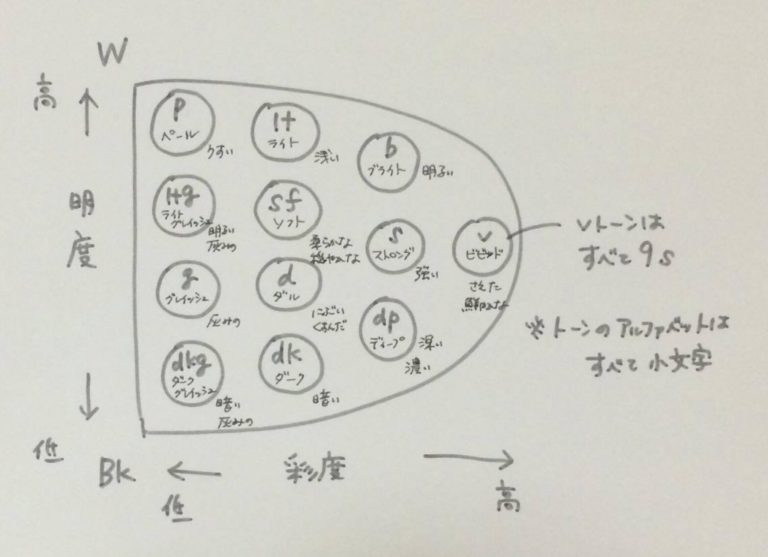 W
高
明度
低
Bk
p
ペール
うすい
lt
ライト
浅い
b
ブライト
明るい
ltg
ライト
グレイッシュ
明るい
灰みの
sf
ソフト
柔らかな
穏やかな
s
ストロング
強い
v
ビビッド
さえた
鮮やかな
g
グレイッシュ
灰みの
d
ダル
にぶい
くすんだ
dp
ディープ
深い
濃い
dkg
ダーク
グレイッシュ
暗い
灰みの
dk
ダーク
暗い
vトーンは
すべて9s
※トーンのアルファベットは
すべて小文字
彩度
低
高